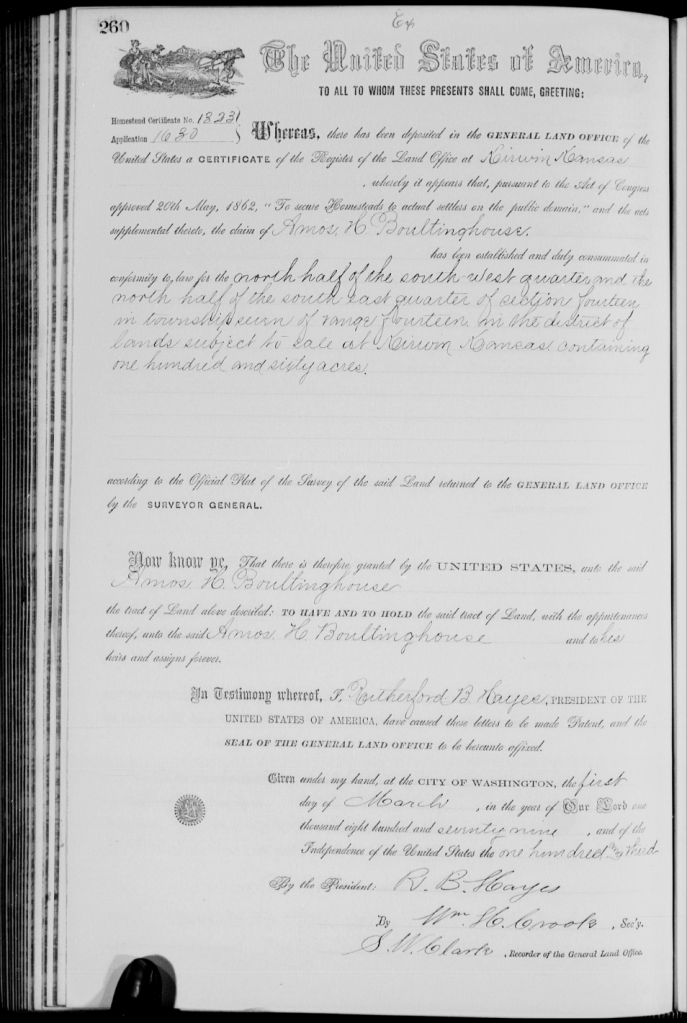 260
Ex
The United States of America,
TO ALL TO WHOM THESE PRESENTS SHALL COME, GREETING:
Homestead Certificate No. 1323
Application 1630
Whereas, there has been deposited in the GENERAL LAND OFFICE of the
United States a CERTIFICATE of the Register of the Land Office at Kirwin Kansas
, whereby it appears that, pursuant to the Act of Congress
approved 20th May, 1862, "To secure Homesteads to actual settlers on the public domain," and the acts
supplemental thereto, the claim of Amos H. Boultinghouse.
has been established and duly consummated in
conformity to law for the north half of the south west quarter and the
north half of the south east quarter of section fourteen
in township seven of range fourteen in the district of
lands subject to sale at Kirwin Kansas containing
one hundred and sixty acres.
according to the Official Plat of the Survey of the said Land returned to the GENERAL LAND OFFICE
by the SURVEYOR GENERAL.
Now know ye, That there is therefore granted by the UNITED STATES, unto the said
Amos H. Boultinghouse
the tract of Land above described: TO HAVE AND TO HOLD the said tract of Land, with the appurtenances
thereof, unto the said Amos H. Boultinghouse and to his
heirs and assigns forever.
In Testimony whereof, I, Rutherford B. Hayes, PRESIDENT OF THE
UNITED STATES OF AMERICA, have caused these letters to be made Patent, and the
SEAL OF THE GENERAL LAND OFFICE to be hereunto affixed.
Given under my hand, at the CITY OF WASHINGTON, the first
day of March, in the year of Our Lord one
thousand eight hundred and seventy nine, and of the
Independence of the United States the one hundred and third
By the President: R. B. Hayes
By Wm. H. Crook, Sec'y.
S. W. Clark, Recorder of the General Land Office.